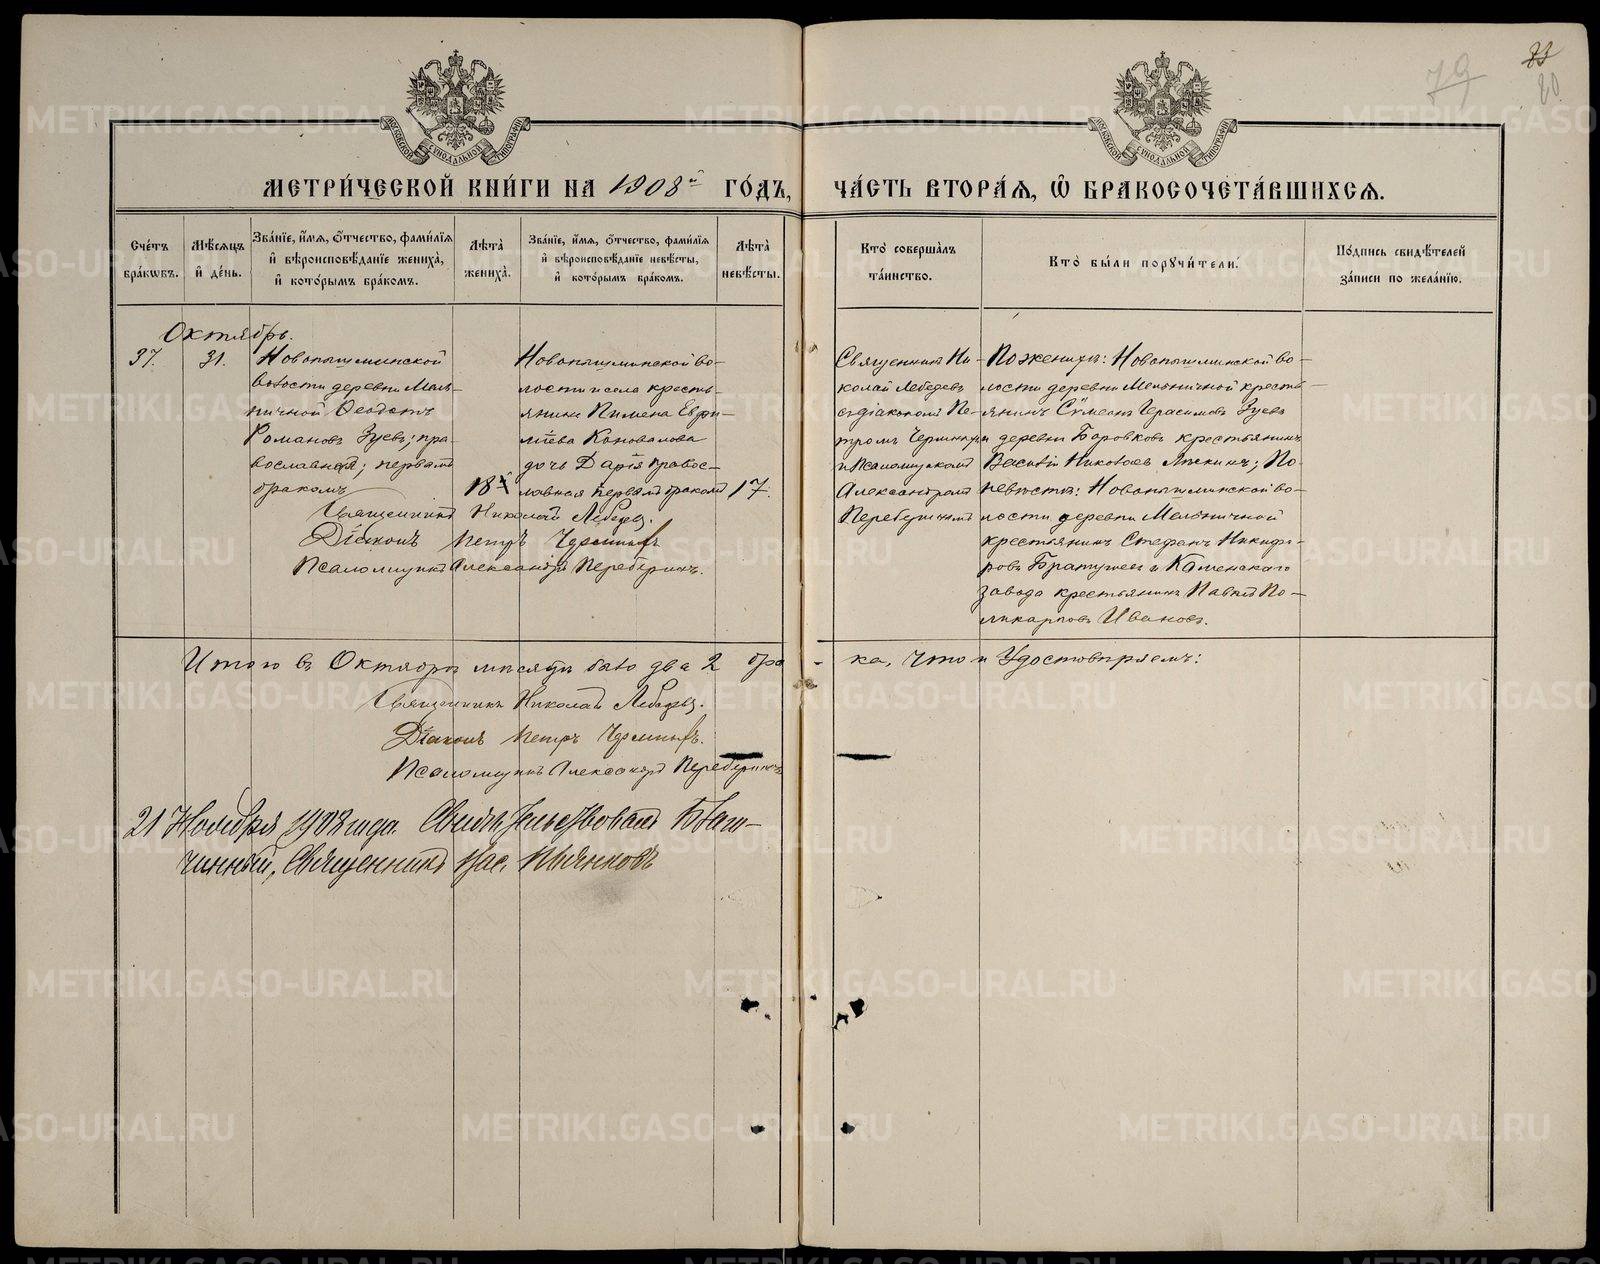 79
23
80
МОСКОВСКОЙ СѴНОДАЛЬНОЙ ТИПОГРАФІИ
МОСКОВСКОЙ СѴНОДАЛЬНОЙ ТИПОГРАФІИ
МЕТРИ́ЧЕСКОЙ КНИ́ГИ НА 1908й ГО́ДЪ, ЧА́СТЬ ВТОРА́Я, Ѡ҆ БРАКОСОЧЕТА́ВШИХСЯ.
Сче́тъ бра́кѡвъ.
Мѣ́сяцъ и҆ де́нь.
Зва́нїе, и҆́мя, ѻ҆́тчество, фами́лїя и҆ вѣроисповѣ́данїе жениха̀, и҆ кото́рымъ бра́комъ.
Лѣ́та жениха̀.
Зва́нїе, и҆́мя, ѻ҆́тчество, фами́лїя и҆ вѣроисповѣ́данїе невѣ́сты, и҆ кото́рымъ бра́комъ.
Лѣ́та невѣ́сты.
Кто̀ соверша́лъ та́инство.
Кто̀ бы́ли порꙋчи́тели.
По́дпись свидѣ́телей за́писи по жела́нїю.
Октябрь.
37.
31.
Новопышминской
волости деревни Мель-
ничной Ѳеодотъ
Романовъ Зуевъ; пра-
вославный; первымъ
бракомъ
18
Новопышминской во-
лости и села кресть-
янина Пимена Еври-
Коновалова
дочь Дарія правос-
лавная первымъ бракомъ
17.
Священникъ Ни-
колай Лебедевъ
съ діакономъ Пе-
тромъ
и Псаломщикомъ
Александромъ
По женихѣ: Новопышминской во-
лости деревни Мельничной кресть-
янинъ Сѵмеонъ Герасимовъ Зуевъ
и деревни Боровковъ крестьянинъ
Василій Николаевъ По
невѣстѣ: Новопышминской во-
лости деревни Мельничной
крестьянинъ Стефанъ Никифо-
ровъ и Каменскаго
завода крестьянинъ Павелъ По-
ликарповъ Ивановъ.
Священникъ Николай Лебедевъ.
Діаконъ Петръ
Псаломщикъ Александръ
Итого въ Октябрѣ мѣсяцѣ было два 2 бра-ка, что и Удостовѣряемъ:
Священникъ Николай Лебедевъ.
Діаконъ Петръ
Псаломщикъ Александръ
21 Ноября 1908 года. Свидѣтельствовалъ Благо-
чинный, Священникъ Вас. Пьянковъ
METRIKI.GASO-URAL.RU